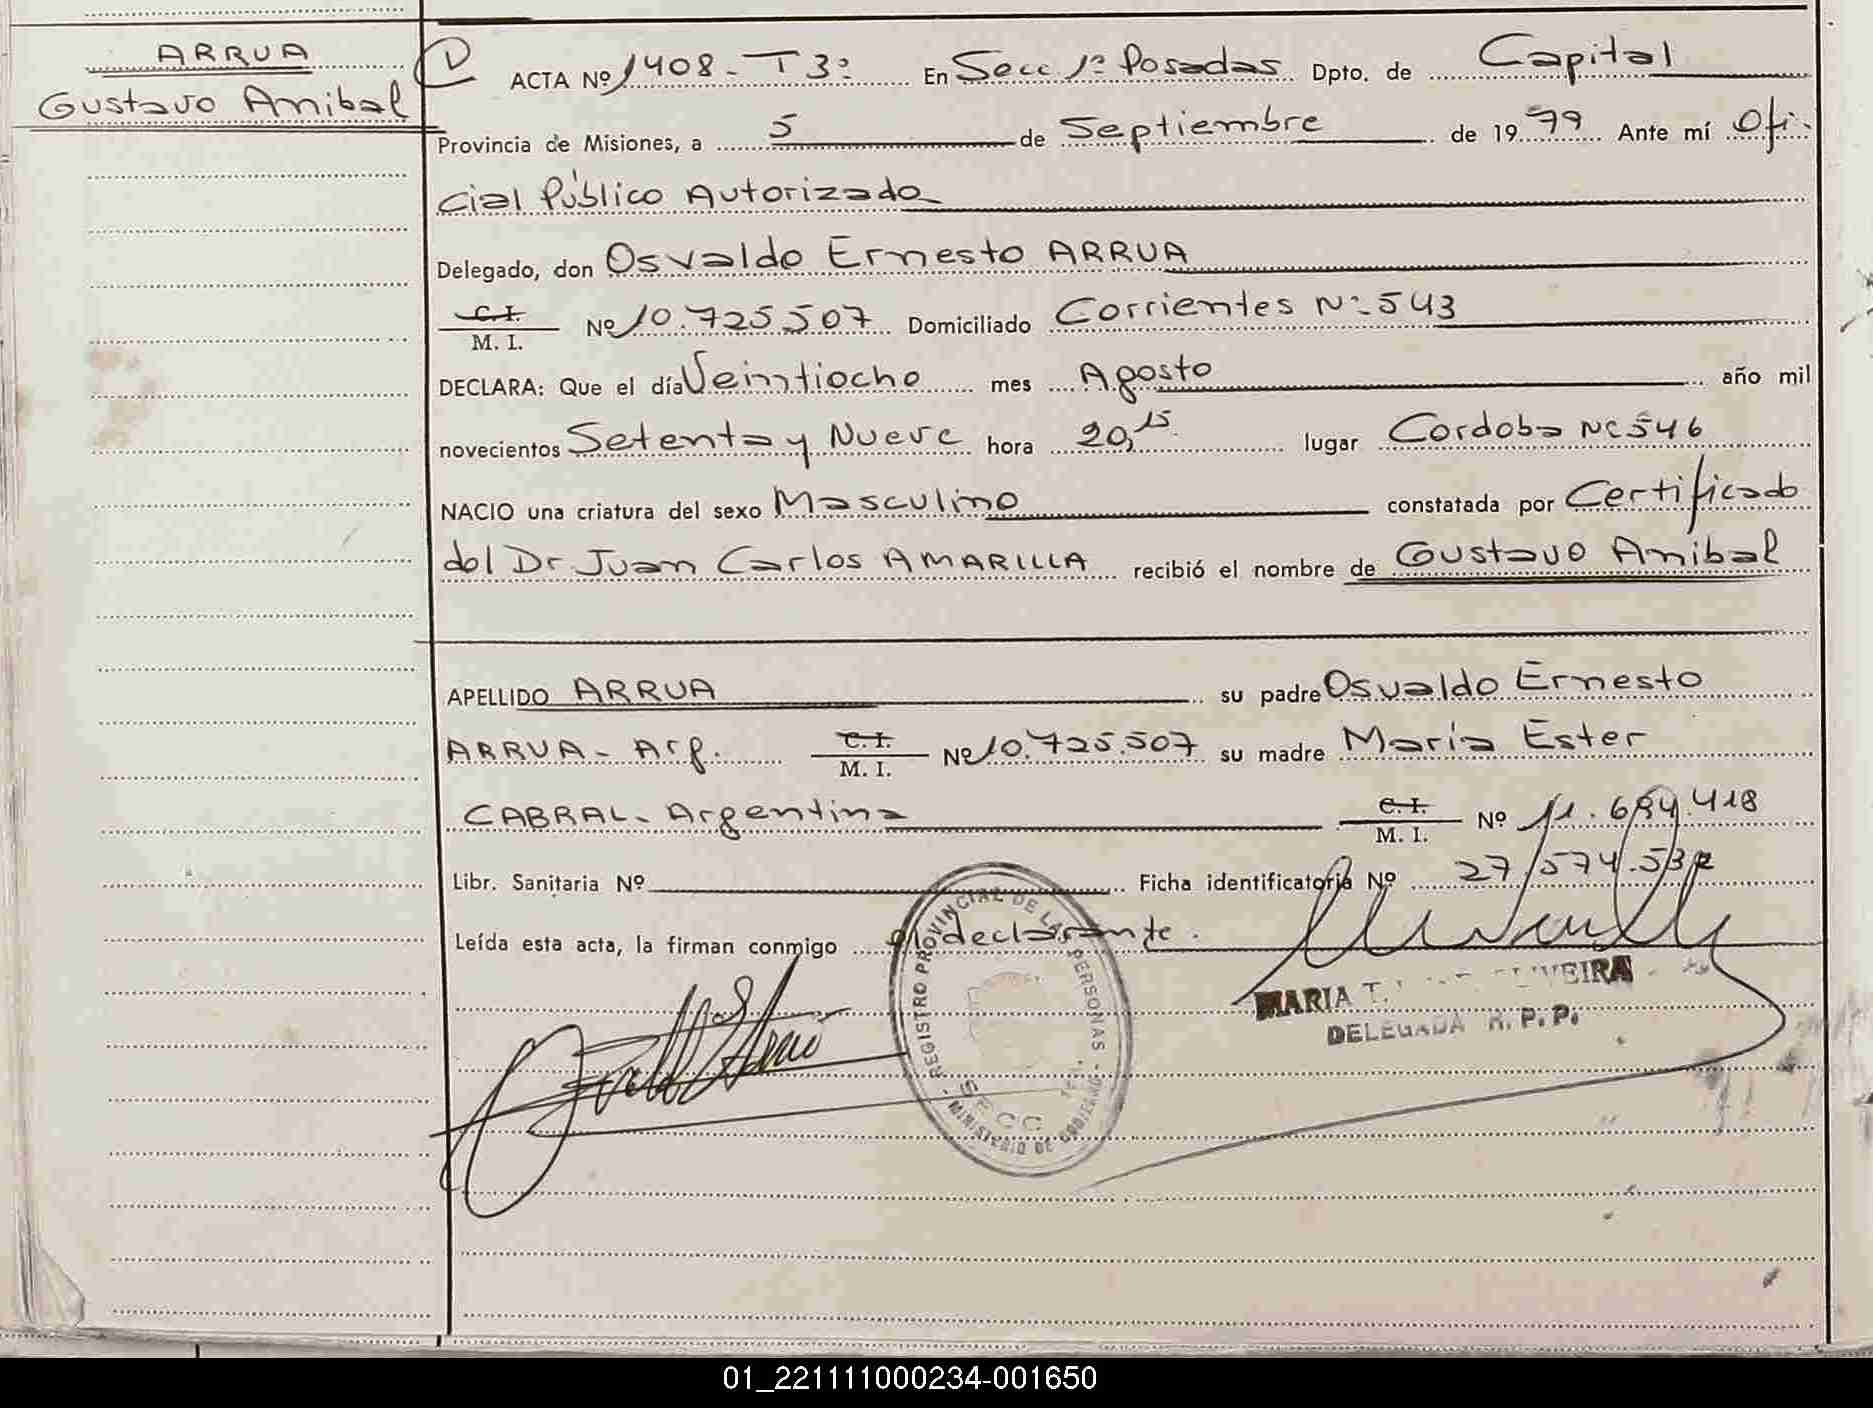 ARRUA
Gustavo Anibal
ACTA Nº 1408 - T 3º En Secc 1º Posadas Dpto. de Capital
Provincia de Misiones, a 5 de Septiembre de 1979 Ante mí Ofi-
cial Público Autorizado
Delegado, don Osvaldo Ernesto ARRUA
C. I.
M. I. Nº 10.725.507 Domiciliado Corrientes Nº 543
DECLARA: Que el día Veintiocho mes Agosto año mil
novecientos Setenta y Nueve hora 20,15 lugar Cordoba Nº 546
NACIO una criatura del sexo Masculino constatada por Certificado
del Dr Juan Carlos AMARILLA recibió el nombre de Gustavo Anibal
APELLIDO ARRUA su padre Osvaldo Ernesto
ARRUA - Arg. C. I. M. I. Nº 10.725.507 su madre María Ester
CABRAL - Argentina C. I. M. I. Nº 11.694.418
Libr. Sanitaria Nº Ficha identificatoria Nº 27.574.532
Leída esta acta, la firman conmigo el declarante.
REGISTRO PROVINCIAL DE LAS PERSONAS
SECC 1ra.
MINISTERIO DE GOBIERNO
MARIA T.
DELEGADA R.P.P.
01_221111000234-001650